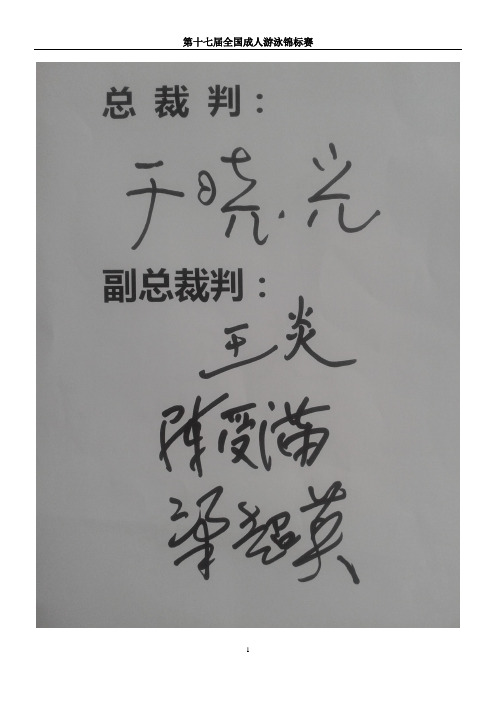 第十七届全国成人游泳锦标赛
总 裁 判：
于晓光
副总裁判：
王炎
陈受满
梁超英
1